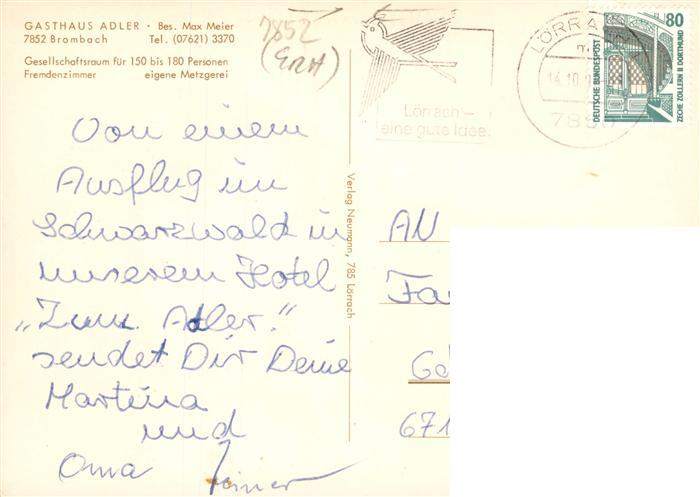 GASTHAUS ADLER · Bes. Max Meier
7852 Brombach Tel. (07621) 3370
Gesellschaftsraum für 150 bis 180 Personen
Fremdenzimmer eigene Metzgerei
7852
LÖRRA
14.10.
78
Lörrach –
eine gute Idee.
80
DEUTSCHE BUNDESPOST
ZECHE ZOLLERN II DORTMUND
Von einem
Ausflug im
Schwarzwald in
unserem Hotel
„Zum Adler."
sendet Dir Deine
Martina
und
Oma
Verlag Neumann, 785 Lörrach
AN
Fa
Ge
671